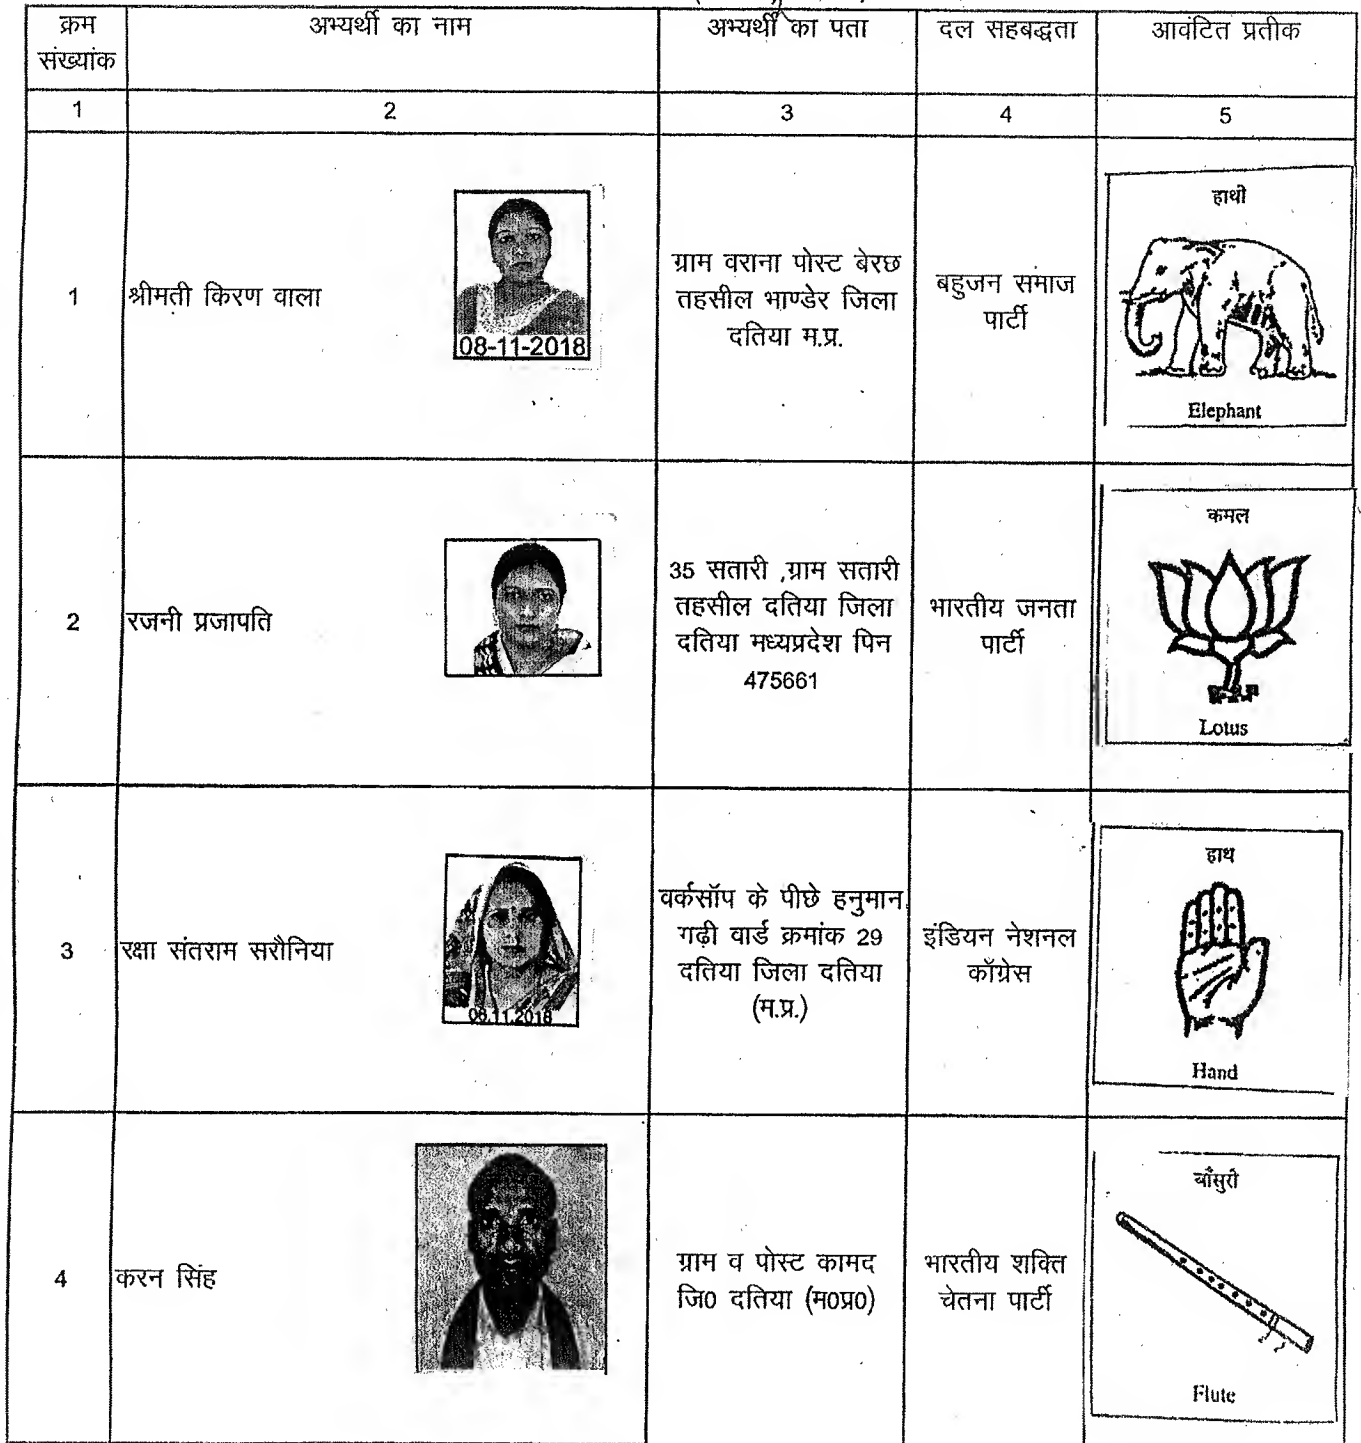 क्रम संख्यांक
अभ्यर्थी का नाम
अभ्यर्थी का पता
दल सहबद्धता
आवंटित प्रतीक
1
2
3
4
5
1
श्रीमती किरण वाला
08-11-2018
ग्राम वराना पोस्ट बेरछ
तहसील भाण्डेर जिला
दतिया म.प्र.
बहुजन समाज
पार्टी
हाथी
Elephant
2
रजनी प्रजापति
35 सतारी ,ग्राम सतारी
तहसील दतिया जिला
दतिया मध्यप्रदेश पिन
475661
भारतीय जनता
पार्टी
कमल
Lotus
3
रक्षा संतराम सरौनिया
08.11.2018
वर्कसॉप के पीछे हनुमान
गढ़ी वार्ड क्रमांक 29
दतिया जिला दतिया
(म.प्र.)
इंडियन नेशनल
काँग्रेस
हाथ
Hand
4
करन सिंह
ग्राम व पोस्ट कामद
जि0 दतिया (म0प्र0)
भारतीय शक्ति
चेतना पार्टी
बाँसुरी
Flute